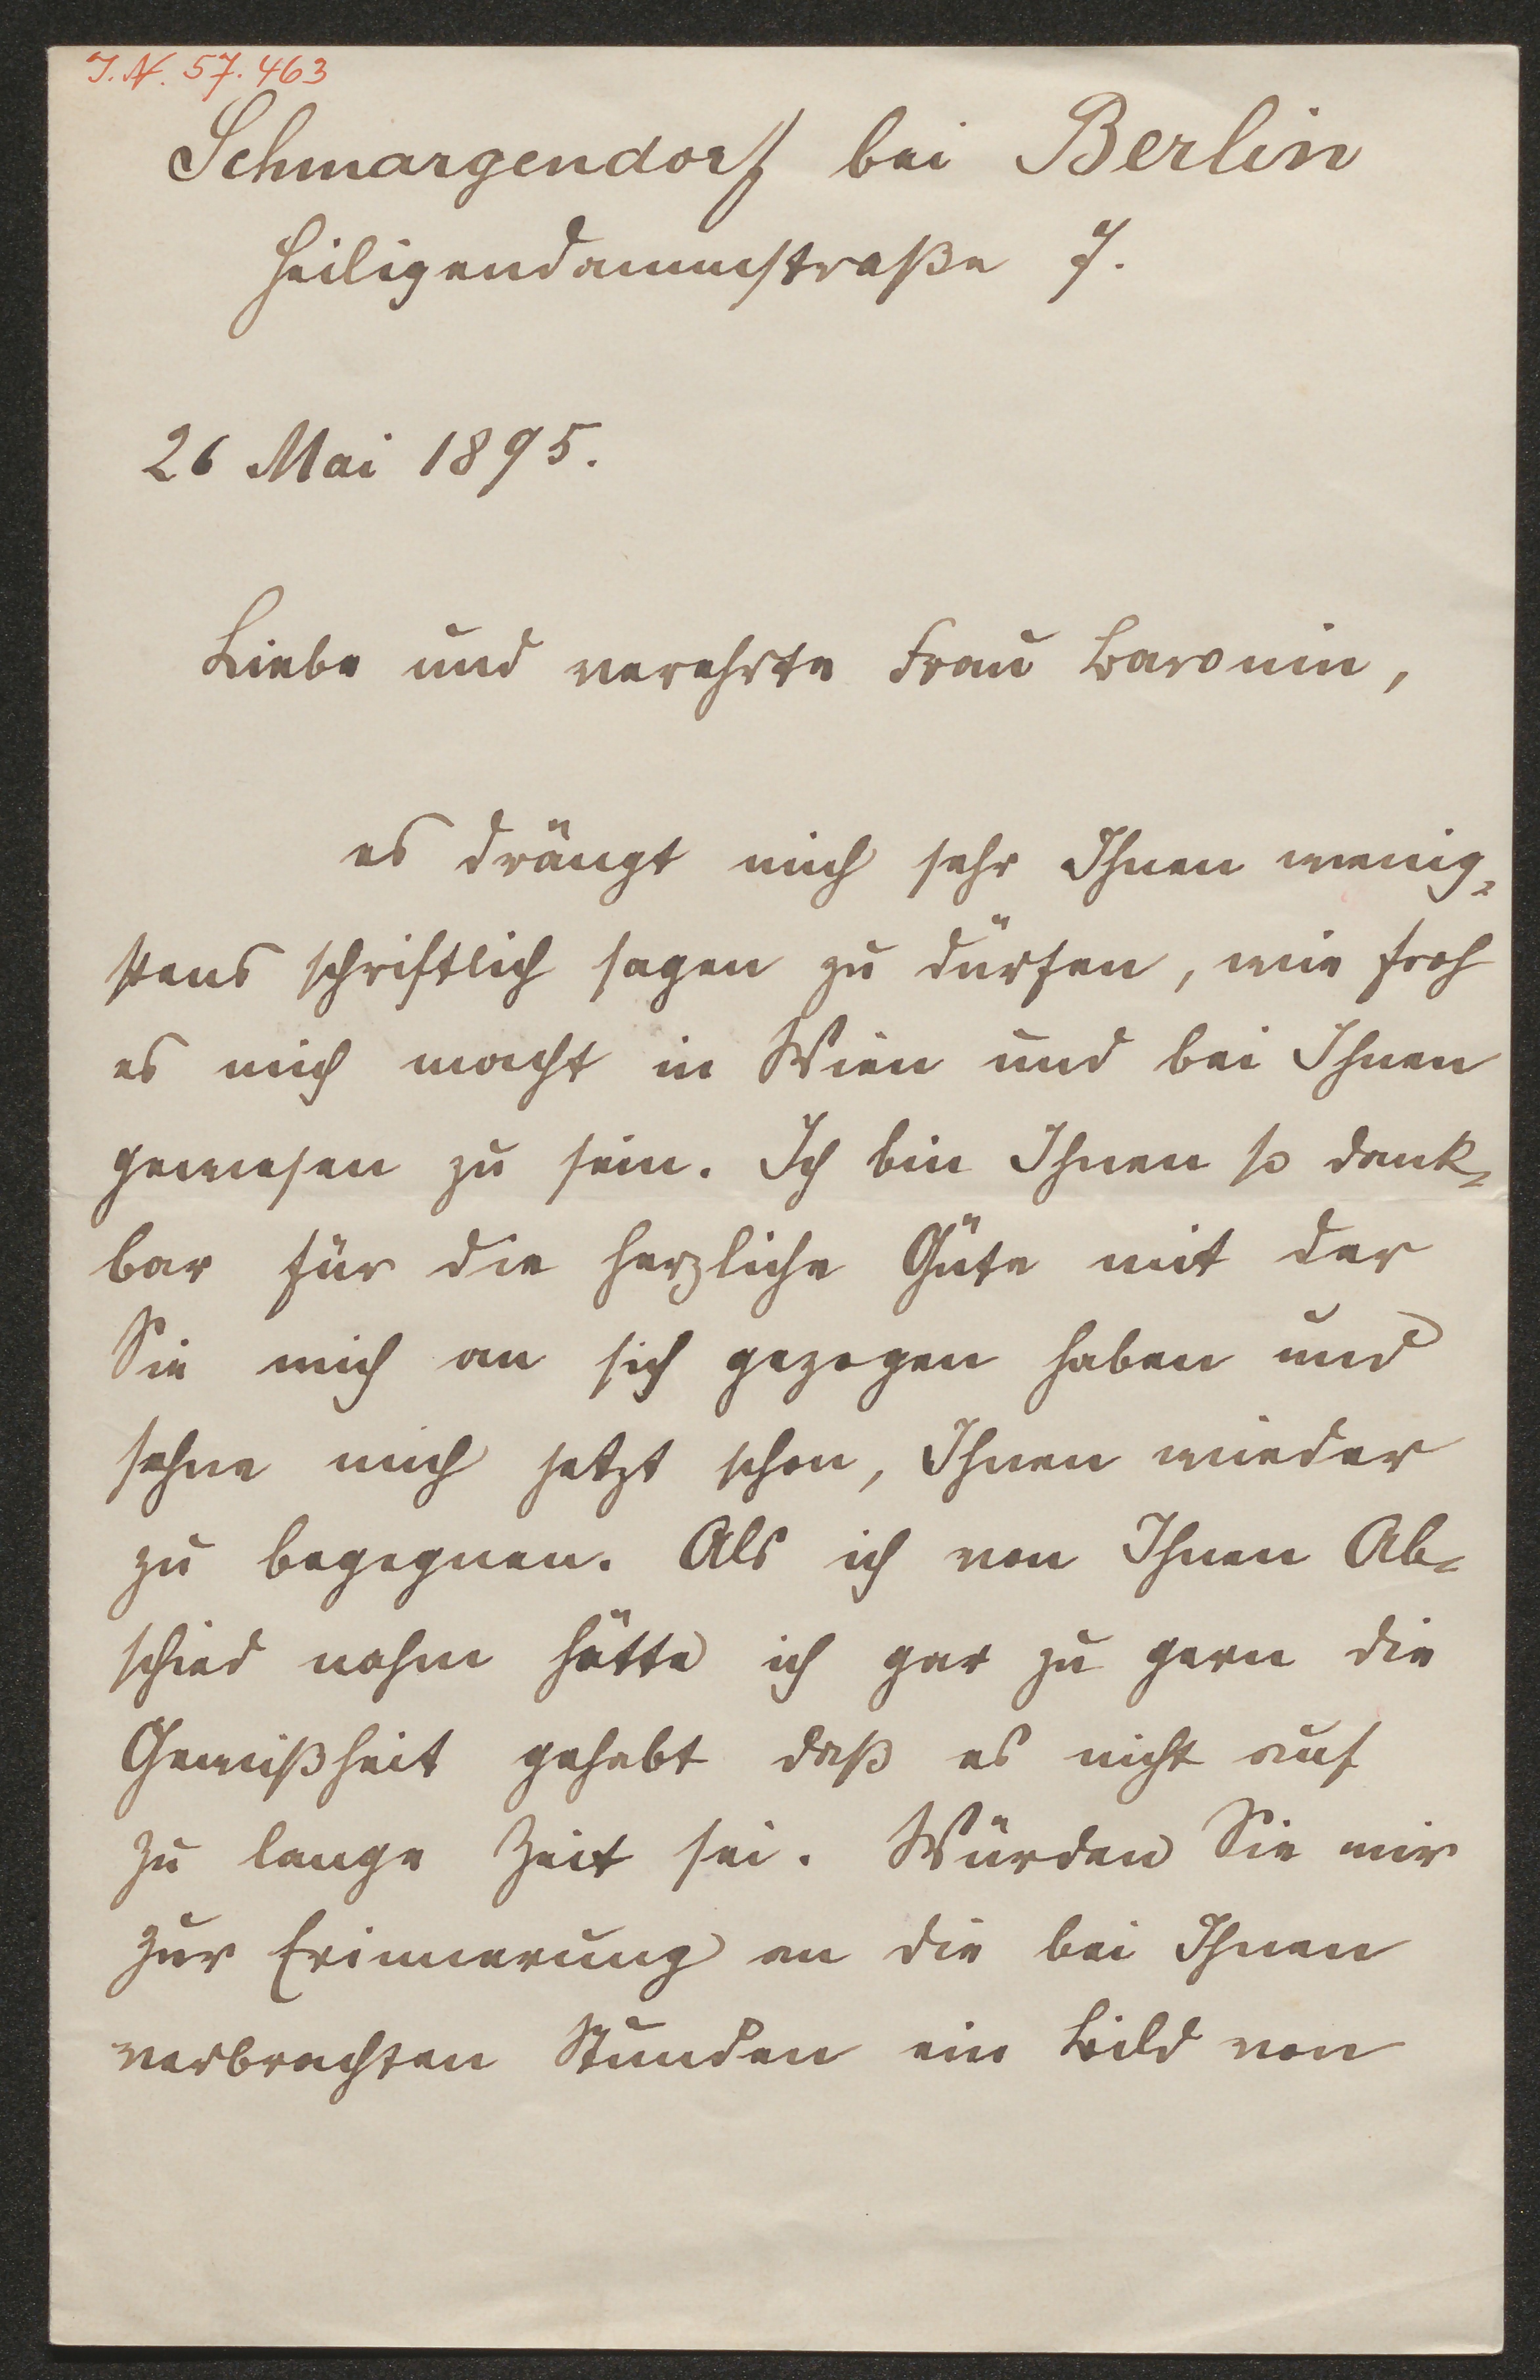 J.N. 57.463
Schmargendorf bei Berlin
Heiligendammstraße 7.
26 Mai 1895.
Liebe und verehrte Frau Baronin,
es drängt mich sehr Ihnen wenig-
stens schriftlich sagen zu dürfen, wie froh
es mich macht in Wien und bei Ihnen
gewesen zu sein. Ich bin Ihnen so dank-
bar für die herzliche Güte mit der
Sie mich an sich gezogen haben und
sehne mich jetzt schon, Ihnen wieder
zu begegnen. Als ich von Ihnen Ab-
schied nahm hätte ich gar zu gern die
Gewißheit gehabt daß es nicht auf
zu lange Zeit sei. Würden Sie mir
zur Erinnerung an die bei Ihnen
verbrachten Stunden ein Bild von